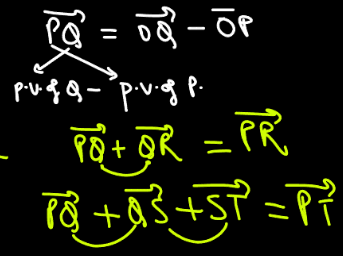 \overrightarrow{PQ} = \overrightarrow{OQ} - \overline{O}P
p.v. of Q - p.v. of P.
- \overrightarrow{PQ} + \overrightarrow{QR} = \overrightarrow{PR}
\overrightarrow{PQ} + \overrightarrow{QS} + \overrightarrow{ST} = \overrightarrow{PT}